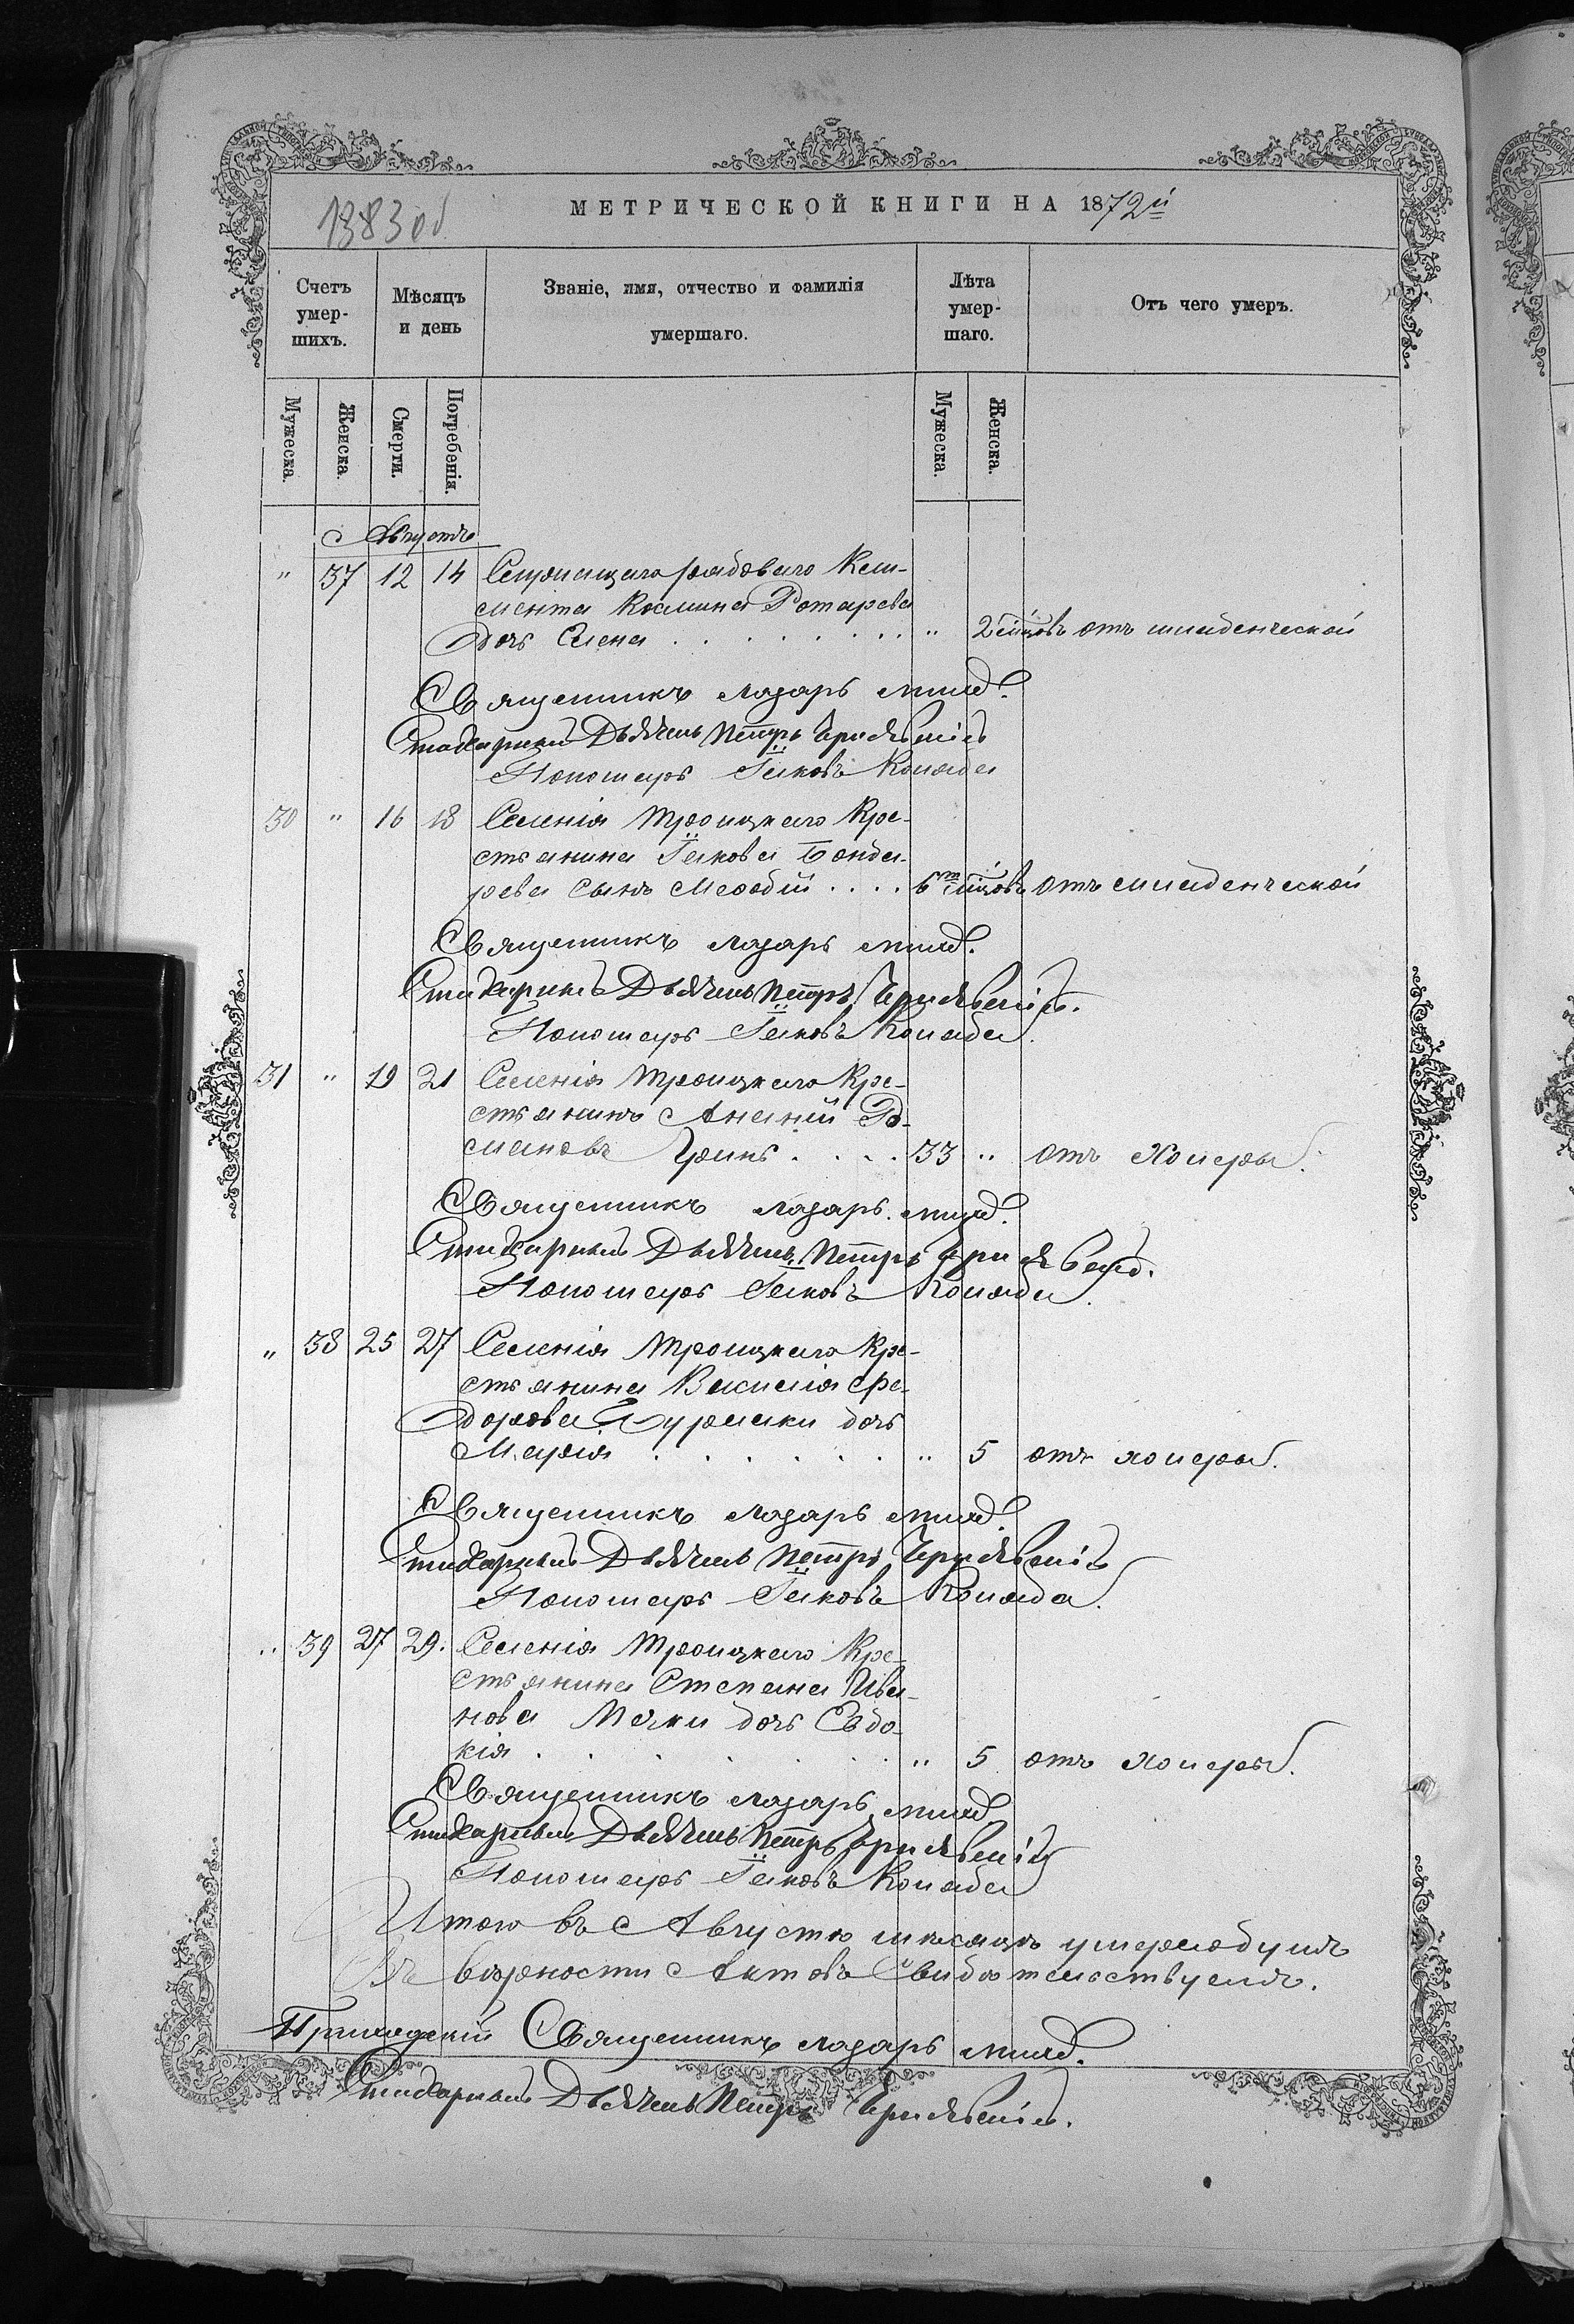 1383 об
МЕТРИЧЕСКОЙ КНИГИ НА 1872й
Счетъ умер-шихъ.
Мѣсяцъ и день
Званіе, имя, отчество и фамилія умершаго.
Лѣта умер-шаго.
Отъ чего умеръ.
Мужеска.
Женска.
Смерти.
Погребенія.
Мужеска.
Женска.
Августъ
" 37 12 14 рядоваго Кли-
мента Космина Ротарева
дочь Елена " 2 мцовъ отъ младенческой
Священникъ Лазарь
Стихарный Дьячекъ Петръ
Пономарь Іаковъ Коляда
30 " 16 18 Селенія Троицкаго Кре-
стьянина Іакова Бонда-
рева сынъ Меѳодій 6ти мцовъ отъ младенческой
Священникъ Лазарь
Стихарный Дьячекъ Петръ
Пономарь Іаковъ Коляда.
31 " 19 21 Селенія Троицкаго Кре-
стьянинъ Ананій Ро-
мановъ 33 " отъ холеры.
Священникъ Лазарь
Стихарный Дьячекъ Петръ
Пономарь Іаковъ Коляда.
" 38 25 27 Селенія Троицкаго Кре-
стьянина Василія Ѳе-
дорова дочь
Марія " 5 отъ холеры.
Священникъ Лазарь
Стихарный Дьячекъ Петръ
Пономарь Іаковъ Коляда.
" 39 27 29. Селенія Троицкаго Кре-
стьянина Стефана Ива-
нова дочь Евдо-
кія " 5 отъ холеры.
Священникъ Лазарь
Стихарный Дьячекъ Петръ
Пономарь Іаковъ Коляда
Итого въ Августѣ мѣсяцѣ умерло
Въ вѣрности Актовъ Свидѣтельствуемъ.
Приходскій Священникъ Лазарь
Стихарный Дьячекъ Петръ